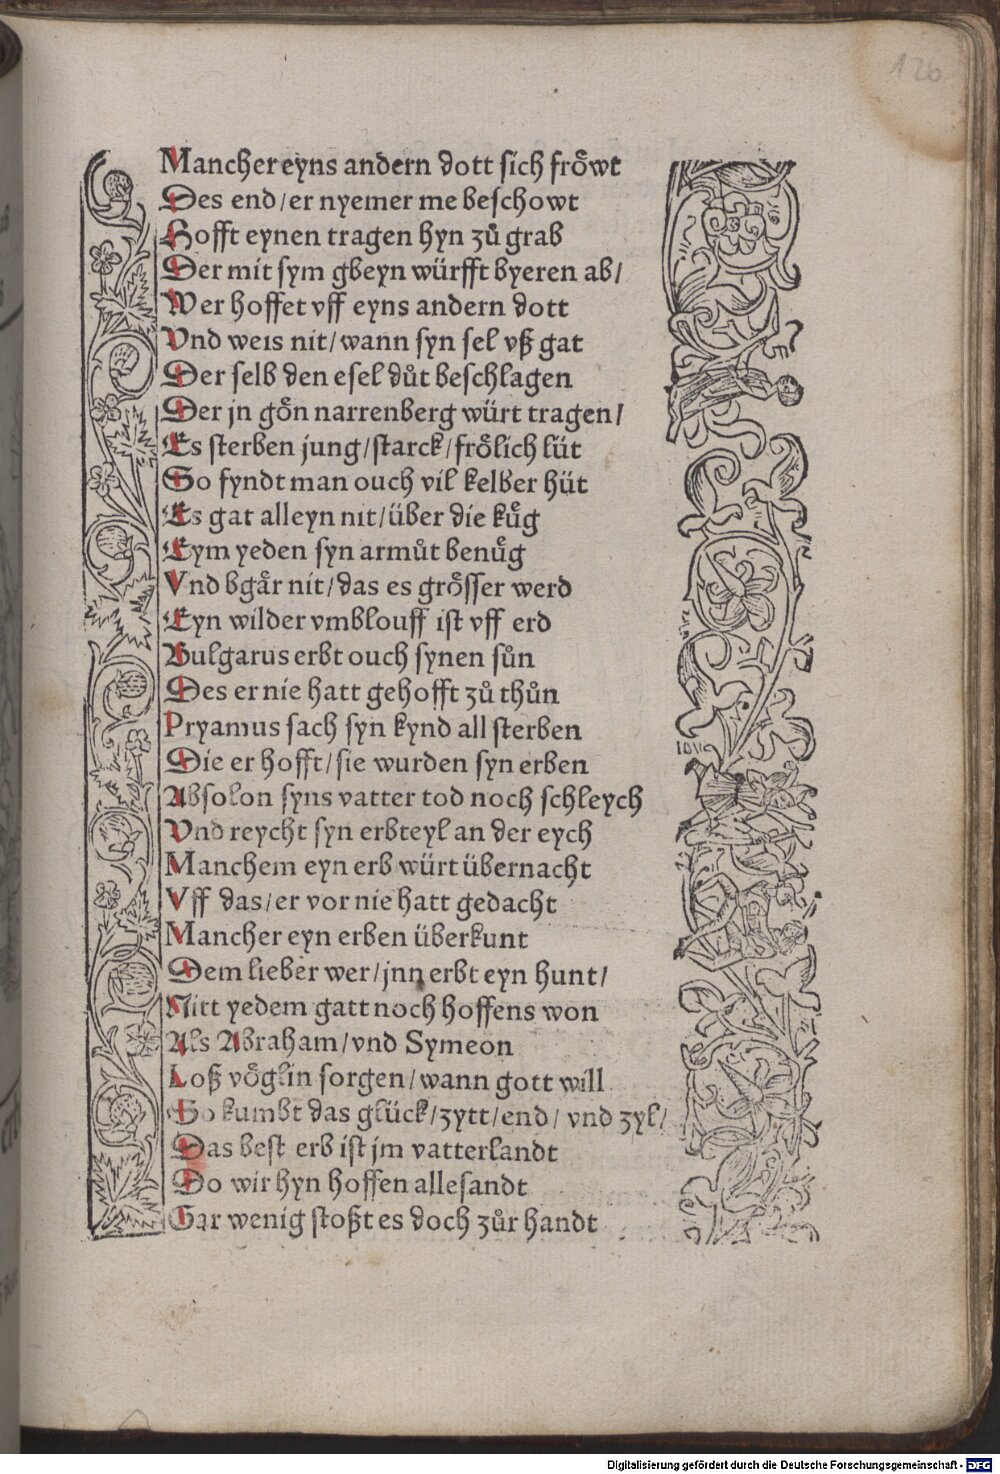 126
Mancher eyns andern dott sich froͤwt
Des end/er nyemer me beschowt
Hofft eynen tragen hyn zuͦ grab
Der mit sym gbeyn würfft byeren ab/
Wer hoffet vff eyns andern dott
Vnd weis nit/wann syn sel vß gat
Der selb den esel duͦt beschlagen
Der jn goͤn narrenberg würt tragen/
Es sterben jung/starck/froͤlich lüt
So fyndt man ouch vil kelber hüt
Es gat alleyn nit/über die kuͤg
Eym yeden syn armuͦt benuͤg
Vnd bgaͤr nit/das es groͤsser werd
Eyn wilder vmblouff ist vff erd
Bulgarus erbt ouch synen suͦn
Des er nie hatt gehofft zuͦ thuͦn
Pryamus sach syn kynd all sterben
Die er hofft/sie wurden syn erben
Absolon syns vatter tod noch schleych
Vnd reycht syn erbteyl an der eych
Manchem eyn erb würt übernacht
Vff das/er vor nie hatt gedacht
Mancher eyn erben überkunt
Dem lieber wer/jnn erbt eyn hunt/
Nitt yedem gatt noch hoffens won
Als Abraham/vnd Symeon
Loß voͤglin sorgen/wann gott will
So kumbt das glück/zytt/end/vnd zyl/
Das best erb ist jm vatterlandt
Do wir hyn hoffen allesandt
Gar wenig stoßt es doch zuͦr handt
Digitalisierung gefördert durch die Deutsche Forschungsgemeinschaft - DFG